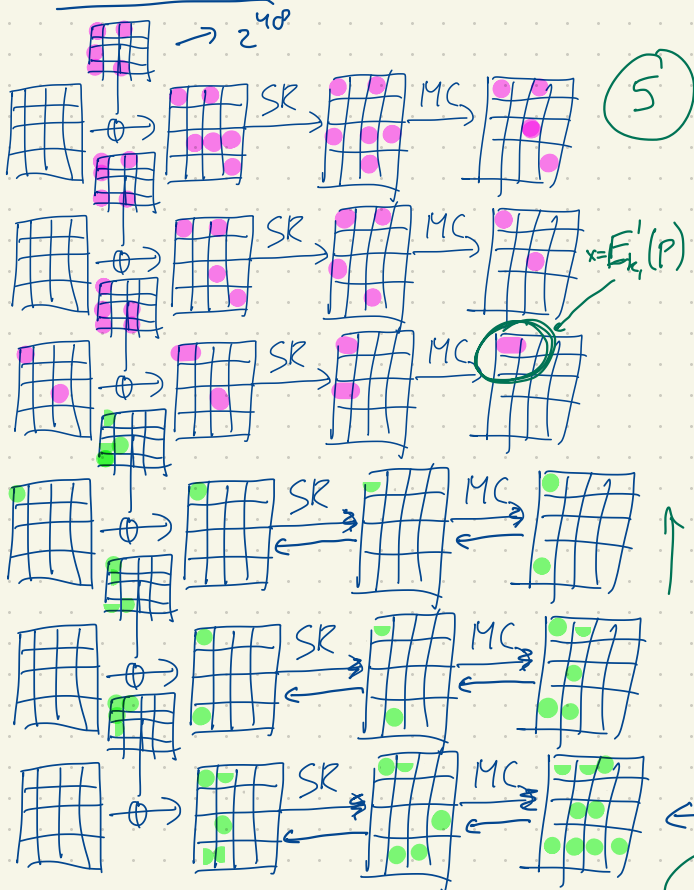 → 2^48
SR MC 5
SR MC x=E'_{k_1}(P)
SR MC
SR MC
SR MC
SR MC